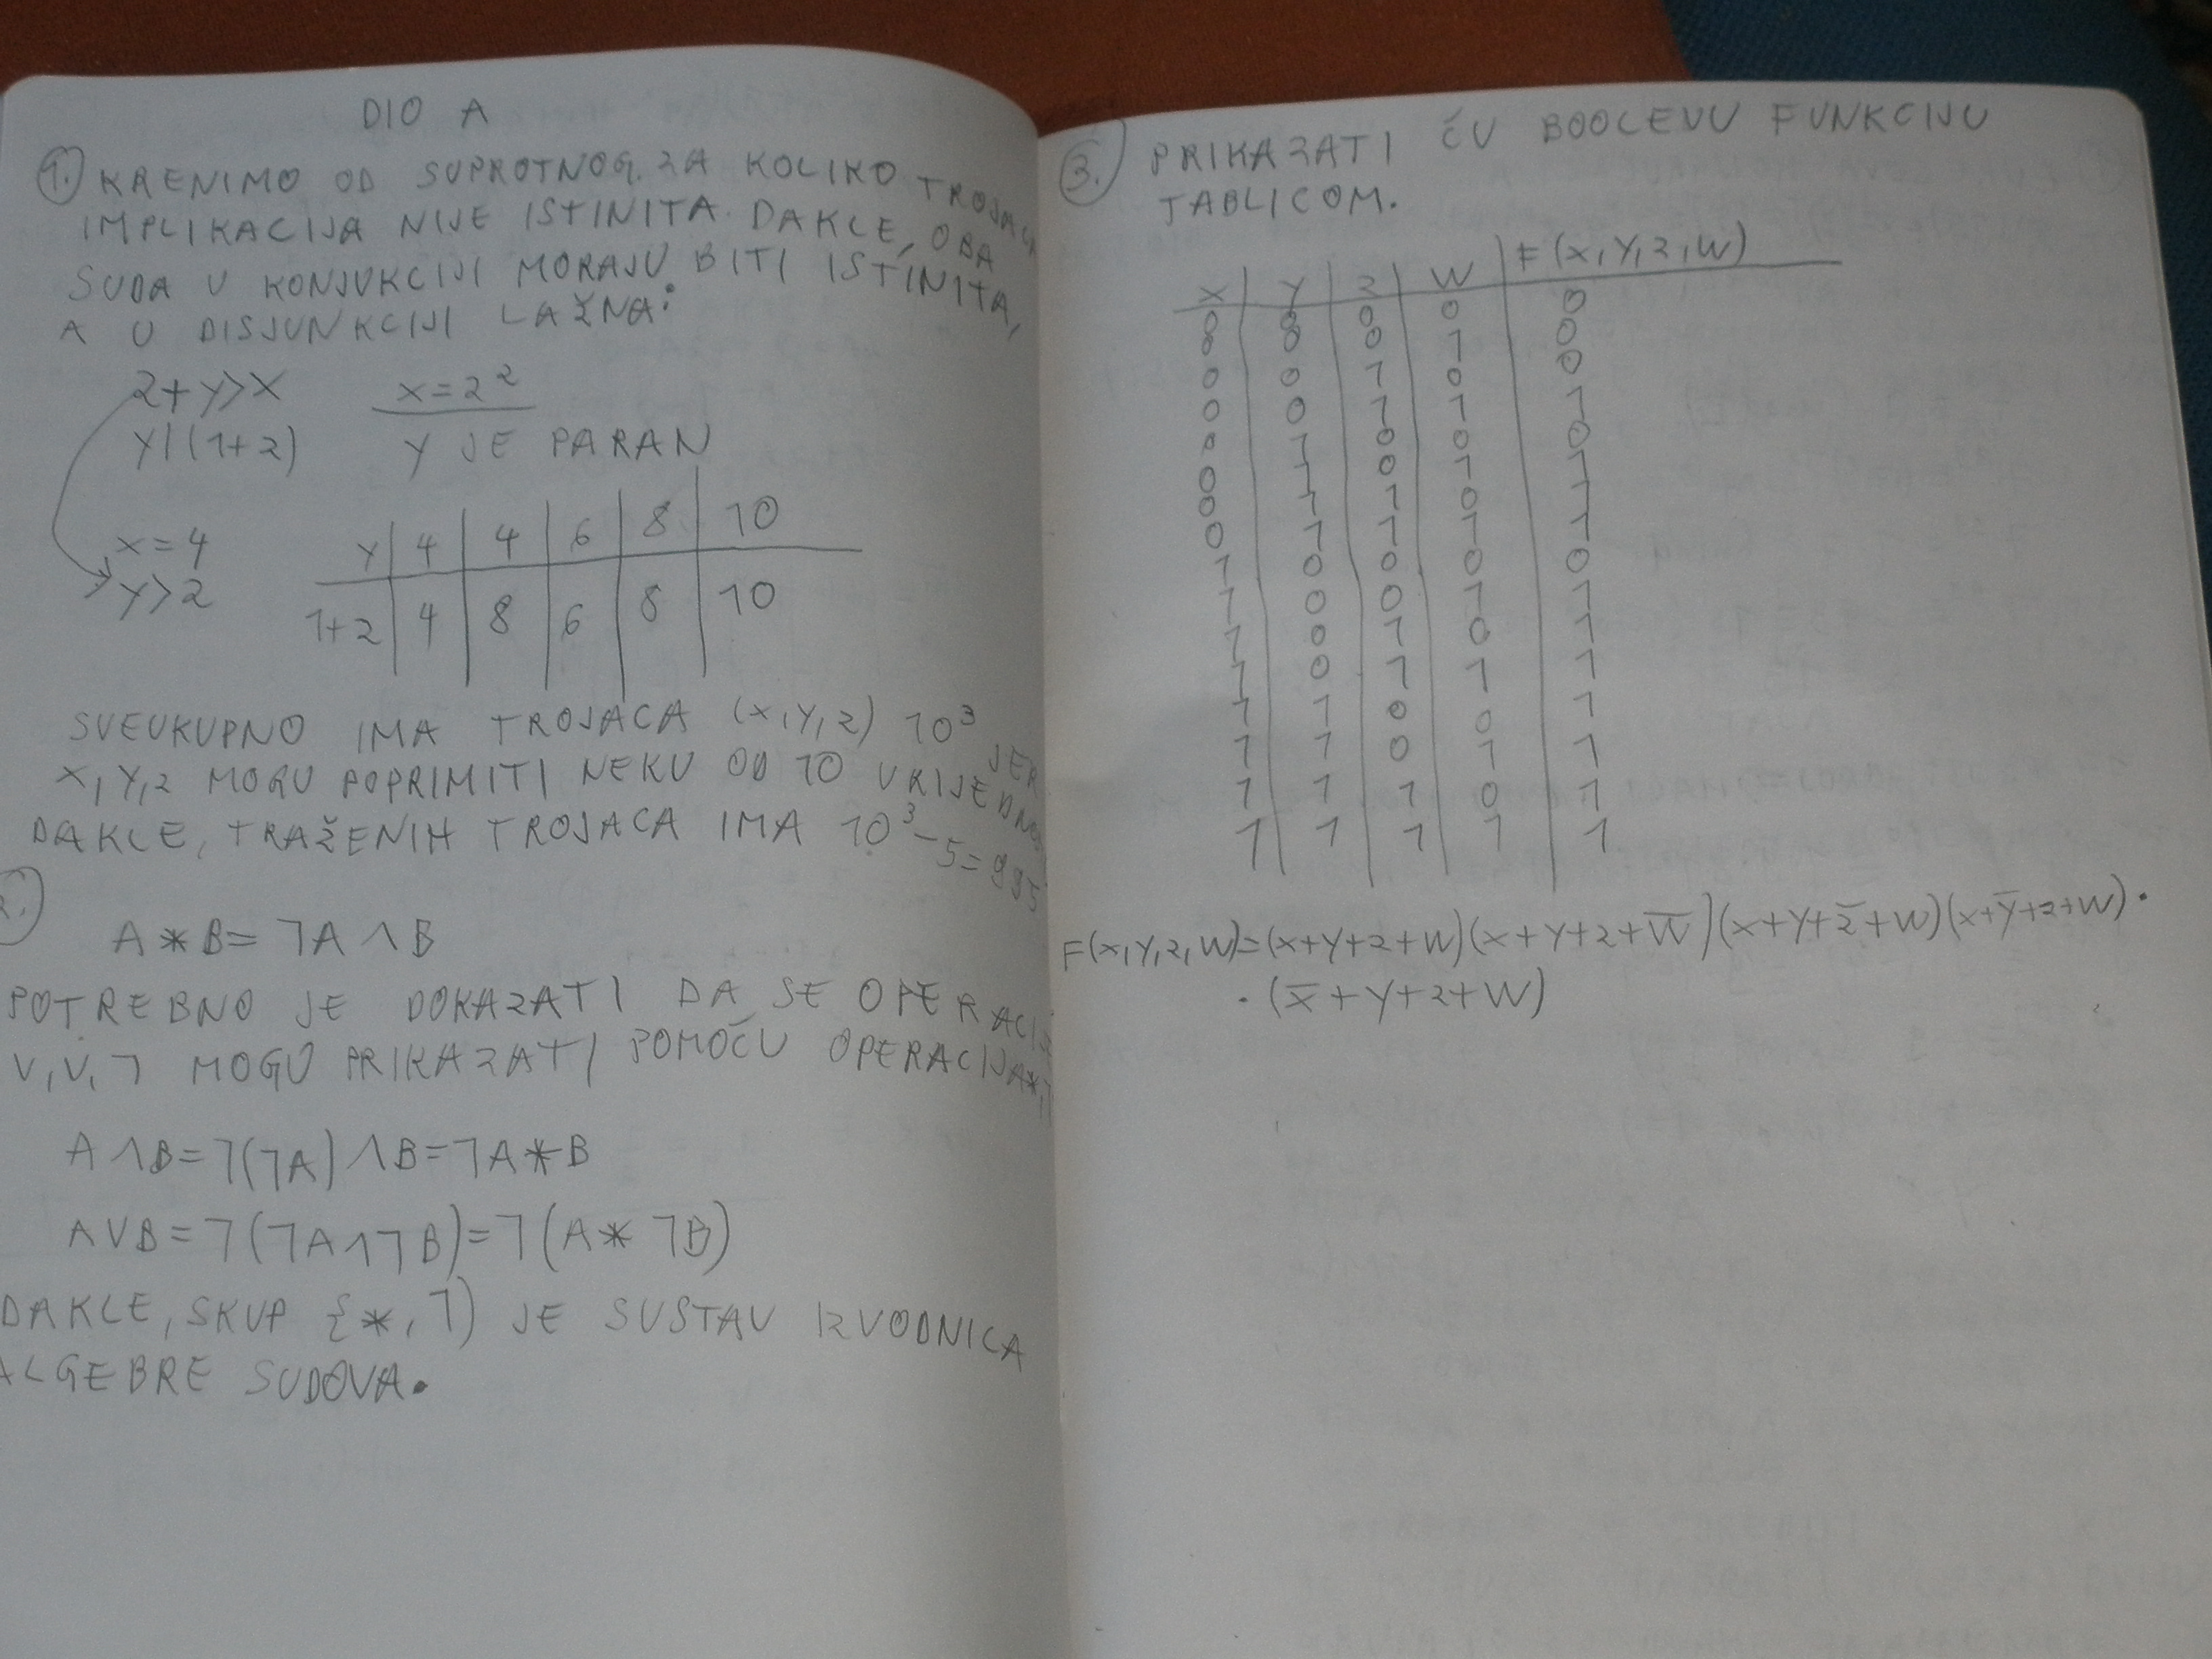 DIO A
1. KRENIMO OD SUPROTNOG. ZA KOLIKO TROJACA
IMPLIKACIJA NIJE ISTINITA. DAKLE, OBA
SUDA U KONJUKCIJI MORAJU BITI ISTINITA,
A U DISJUNKCIJI LAŽNA:
2+y>x x=2²
y|(1+2) y JE PARAN
x=4
y>2
y | 4 | 4 | 6 | 8 | 10
1+2 | 4 | 8 | 6 | 8 | 10
SVEUKUPNO IMA TROJACA (x,y,2) 10³ JER
x,y,2 MOGU POPRIMITI NEKU OD 10
DAKLE, TRAŽENIH TROJACA IMA 10³-5=995
2.
A*B=⅂A∧B
POTREBNO JE DOKAZATI DA SE OPERACIJE
V,V,⅂ MOGU PRIKAZATI POMOĆU OPERACIJA *,
A∧B=⅂(⅂A)∧B=⅂A*B
A∨B=⅂(⅂A∧⅂B)=⅂(A*⅂B)
DAKLE, SKUP {*,⅂} JE SUSTAV IZVODNICA
ALGEBRE SUDOVA.
3. PRIKAZATI ĆU BOOLEVU FUNKCIJU
TABLICOM.
x | y | z | W | F(x,y,z,W)
0 | 0 | 0 | 0 | 0
0 | 0 | 0 | 1 | 0
0 | 0 | 1 | 0 | 0
0 | 0 | 1 | 1 | 1
0 | 1 | 0 | 0 | 0
0 | 1 | 0 | 1 | 1
0 | 1 | 1 | 0 | 1
0 | 1 | 1 | 1 | 1
1 | 0 | 0 | 0 | 0
1 | 0 | 0 | 1 | 1
1 | 0 | 1 | 0 | 1
1 | 0 | 1 | 1 | 1
1 | 1 | 0 | 0 | 1
1 | 1 | 0 | 1 | 1
1 | 1 | 1 | 0 | 1
1 | 1 | 1 | 1 | 1
F(x,y,z,W)=(x+y+z+W)(x+y+z+W̅)(x+y+z̅+W)(x+y̅+z+W)·
·(x̅+y+z+W)